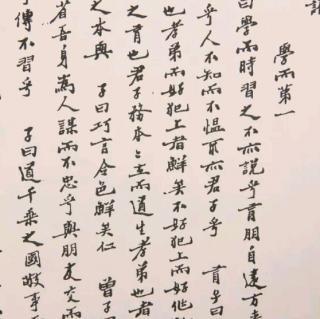 學而第一
曰學而時習之不亦說乎有朋自遠方來
乎人不知而不慍不亦君子乎 有子曰
也孝弟而好犯上者鮮矣不好犯上而好作
之有也君子務本〻立而道生孝弟也者
之本與 子曰巧言令色鮮矣仁 曾子
省吾身爲人謀而不忠乎與朋友交而
傳不習乎 子曰道千乘之國敬事